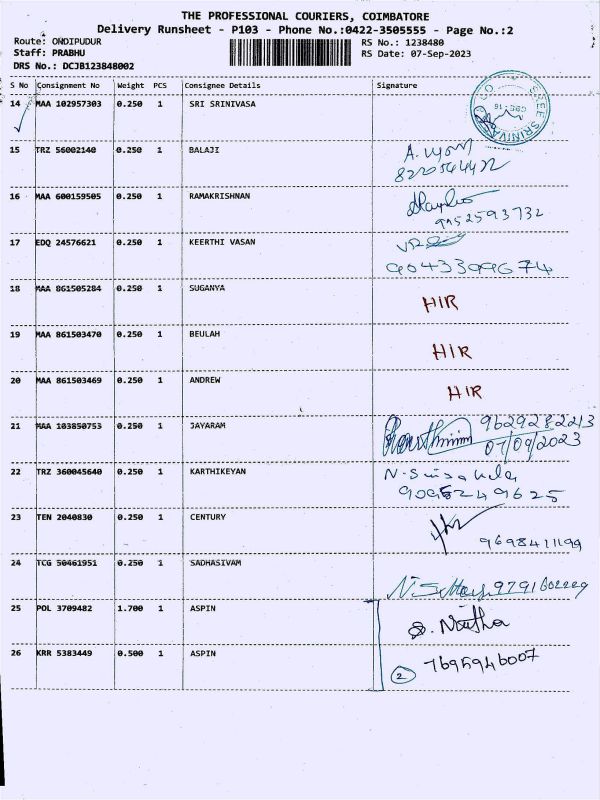 THE PROFESSIONAL COURIERS, COIMBATORE
Delivery Runsheet - P103 - Phone No.:0422-3505555 - Page No.:2
Route: ONDIPUDUR RS No.: 1238480
Staff: PRABHU RS Date: 07-Sep-2023
DRS No.: DCJB123848002
S No Consignment No Weight PCS Consignee Details Signature
14 MAA 102957303 0.250 1 SRI SRINIVASA
SREE SRINIVASA & CO
CBE-16
15 TRZ 56002140 0.250 1 BALAJI
8220564472
16 MAA 600159505 0.250 1 RAMAKRISHNAN
9952593732
17 EDQ 24576621 0.250 1 KEERTHI VASAN
9043399674
18 MAA 861505284 0.250 1 SUGANYA HIR
19 MAA 861503470 0.250 1 BEULAH HIR
20 MAA 861503469 0.250 1 ANDREW HIR
21 MAA 103850753 0.250 1 JAYARAM 9629282213
07/09/2023
22 TRZ 360045640 0.250 1 KARTHIKEYAN
9095249625
23 TEN 2040830 0.250 1 CENTURY
9698411199
24 TCG 50461951 0.250 1 SADHASIVAM
9791602229
25 POL 3709482 1.700 1 ASPIN
26 KRR 5383449 0.500 1 ASPIN 7695946007
2